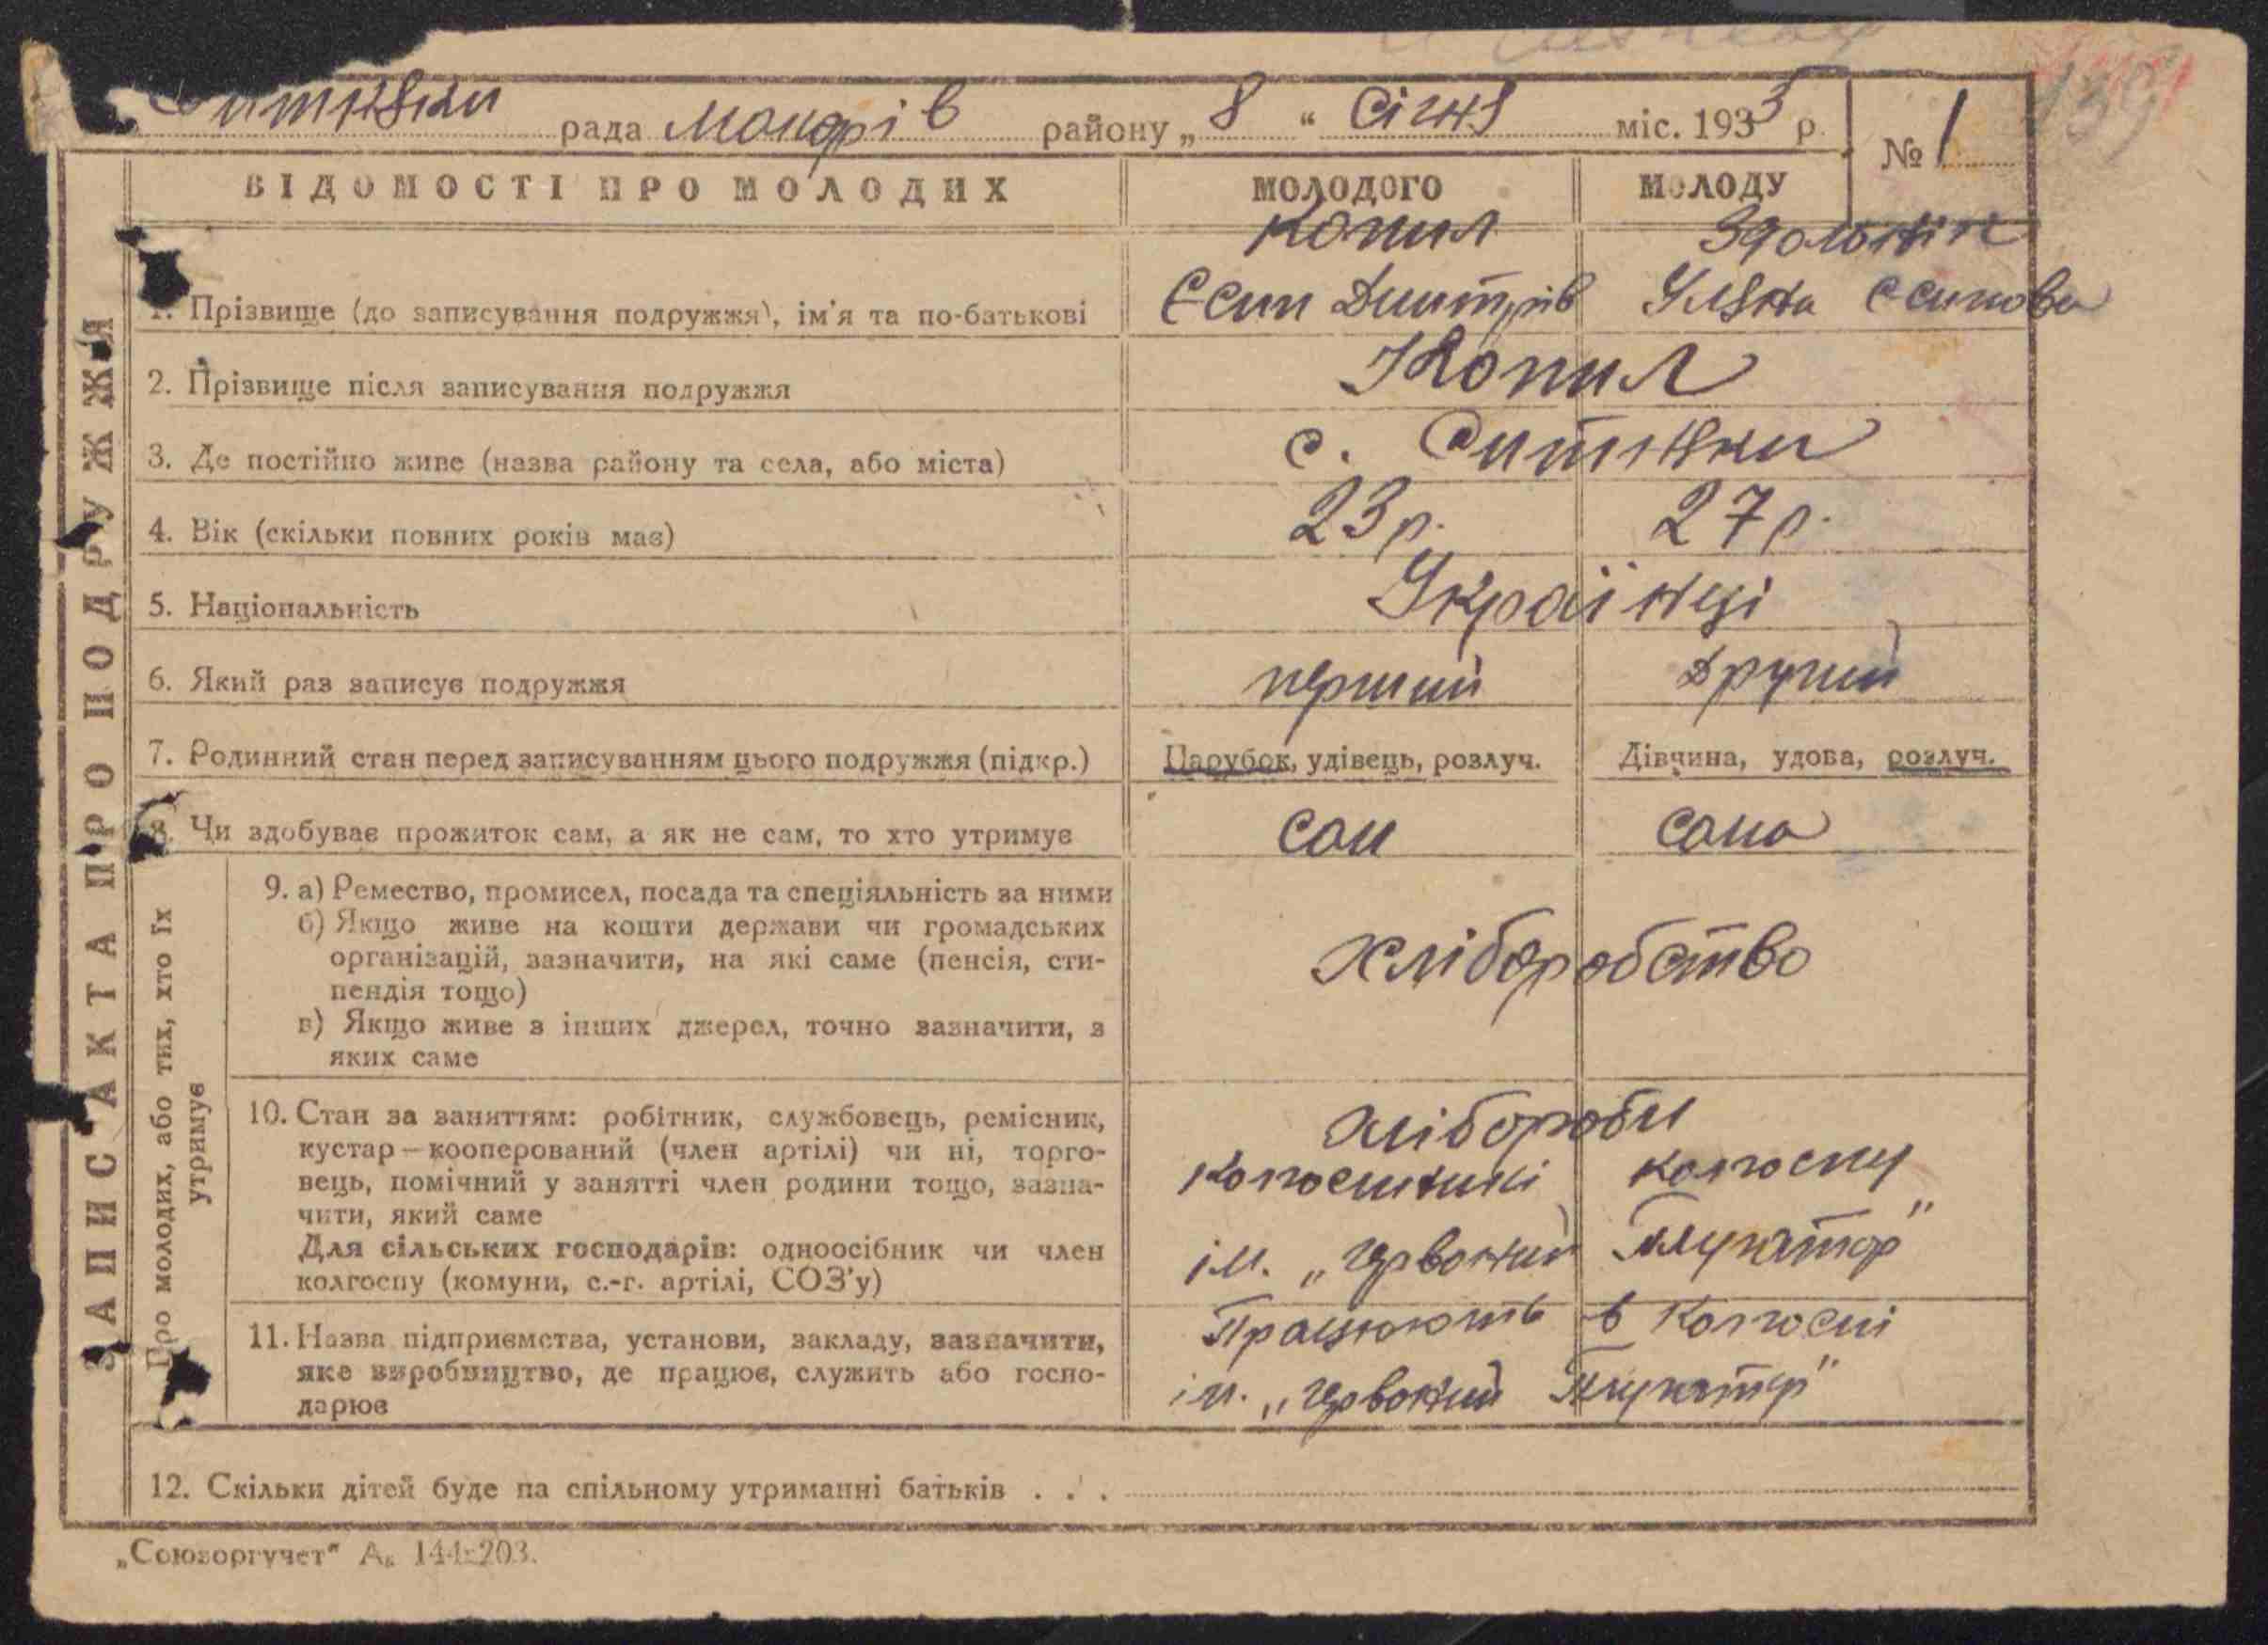 Ситняки рада Макарів району „8" Січня міс. 1935 р. № 1
139
ВІДОМОСТІ ПРО МОЛОДИХ МОЛОДОГО МОЛОДУ
ЗАПИС АКТА ПРО ПОДРУЖЖЯ
Копил
1. Прізвище (до записування подружжя), ім'я та по-батькові Єсип Дмитрів Уляна Єсипова
2. Прізвище після записування подружжя Копил
3. Де постійно живе (назва району та села, або міста) с. Ситняки
4. Вік (скільки повних років має) 23 р. 27 р.
5. Національність Українці
6. Який раз записує подружжя перший Другий
7. Родинний стан перед записуванням цього подружжя (підкр.) Парубок, удівець, розлуч. Дівчина, удова, розлуч.
8. Чи здобуває прожиток сам, а як не сам, то хто утримує сам сама
Про молодих, або тих, хто їх утримує
9. а) Ремество, промисел, посада та спеціяльність за ними
б) Якщо живе на кошти держави чи громадських
організацій, зазначити, на які саме (пенсія, сти-
пендія тощо)
в) Якщо живе з інших джерел, точно зазначити, з
яких саме
Хліборобство
10. Стан за заняттям: робітник, службовець, ремісник,
кустар — кооперований (член артілі) чи ні, торго-
вець, помічний у занятті член родини тощо, зазна-
чити, який саме
Для сільських господарів: одноосібник чи член
колгоспу (комуни, с.-г. артілі, СОЗ'у)
Хлібороби
Колгоспники колгоспу
ім. „Червоний Плугатор"
11. Назва підприємства, установи, закладу, зазначити,
яке виробництво, де працює, служить або госпо-
дарює
Працюють в Колгоспі
ім. „Червоний Плугатор"
12. Скільки дітей буде на спільному утриманні батьків . . .
„Союзоргучет" Ак 144-203.